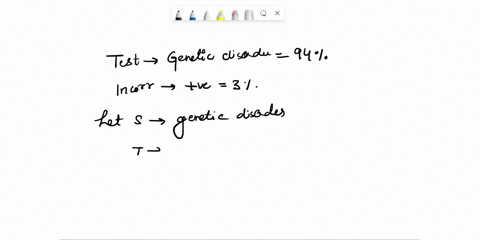 Test → Genetic disodu = 94%.
Incorr → +ve = 3%.
Let S → genetic disodes
T →